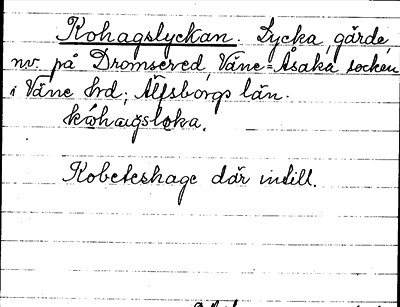 Kohagslyckan. Lycka, gärde
nv. på Dromsered, Väne-Åsaka socken
i Väne hrd; Älfsborgs län.
Kobeteshage där intill.